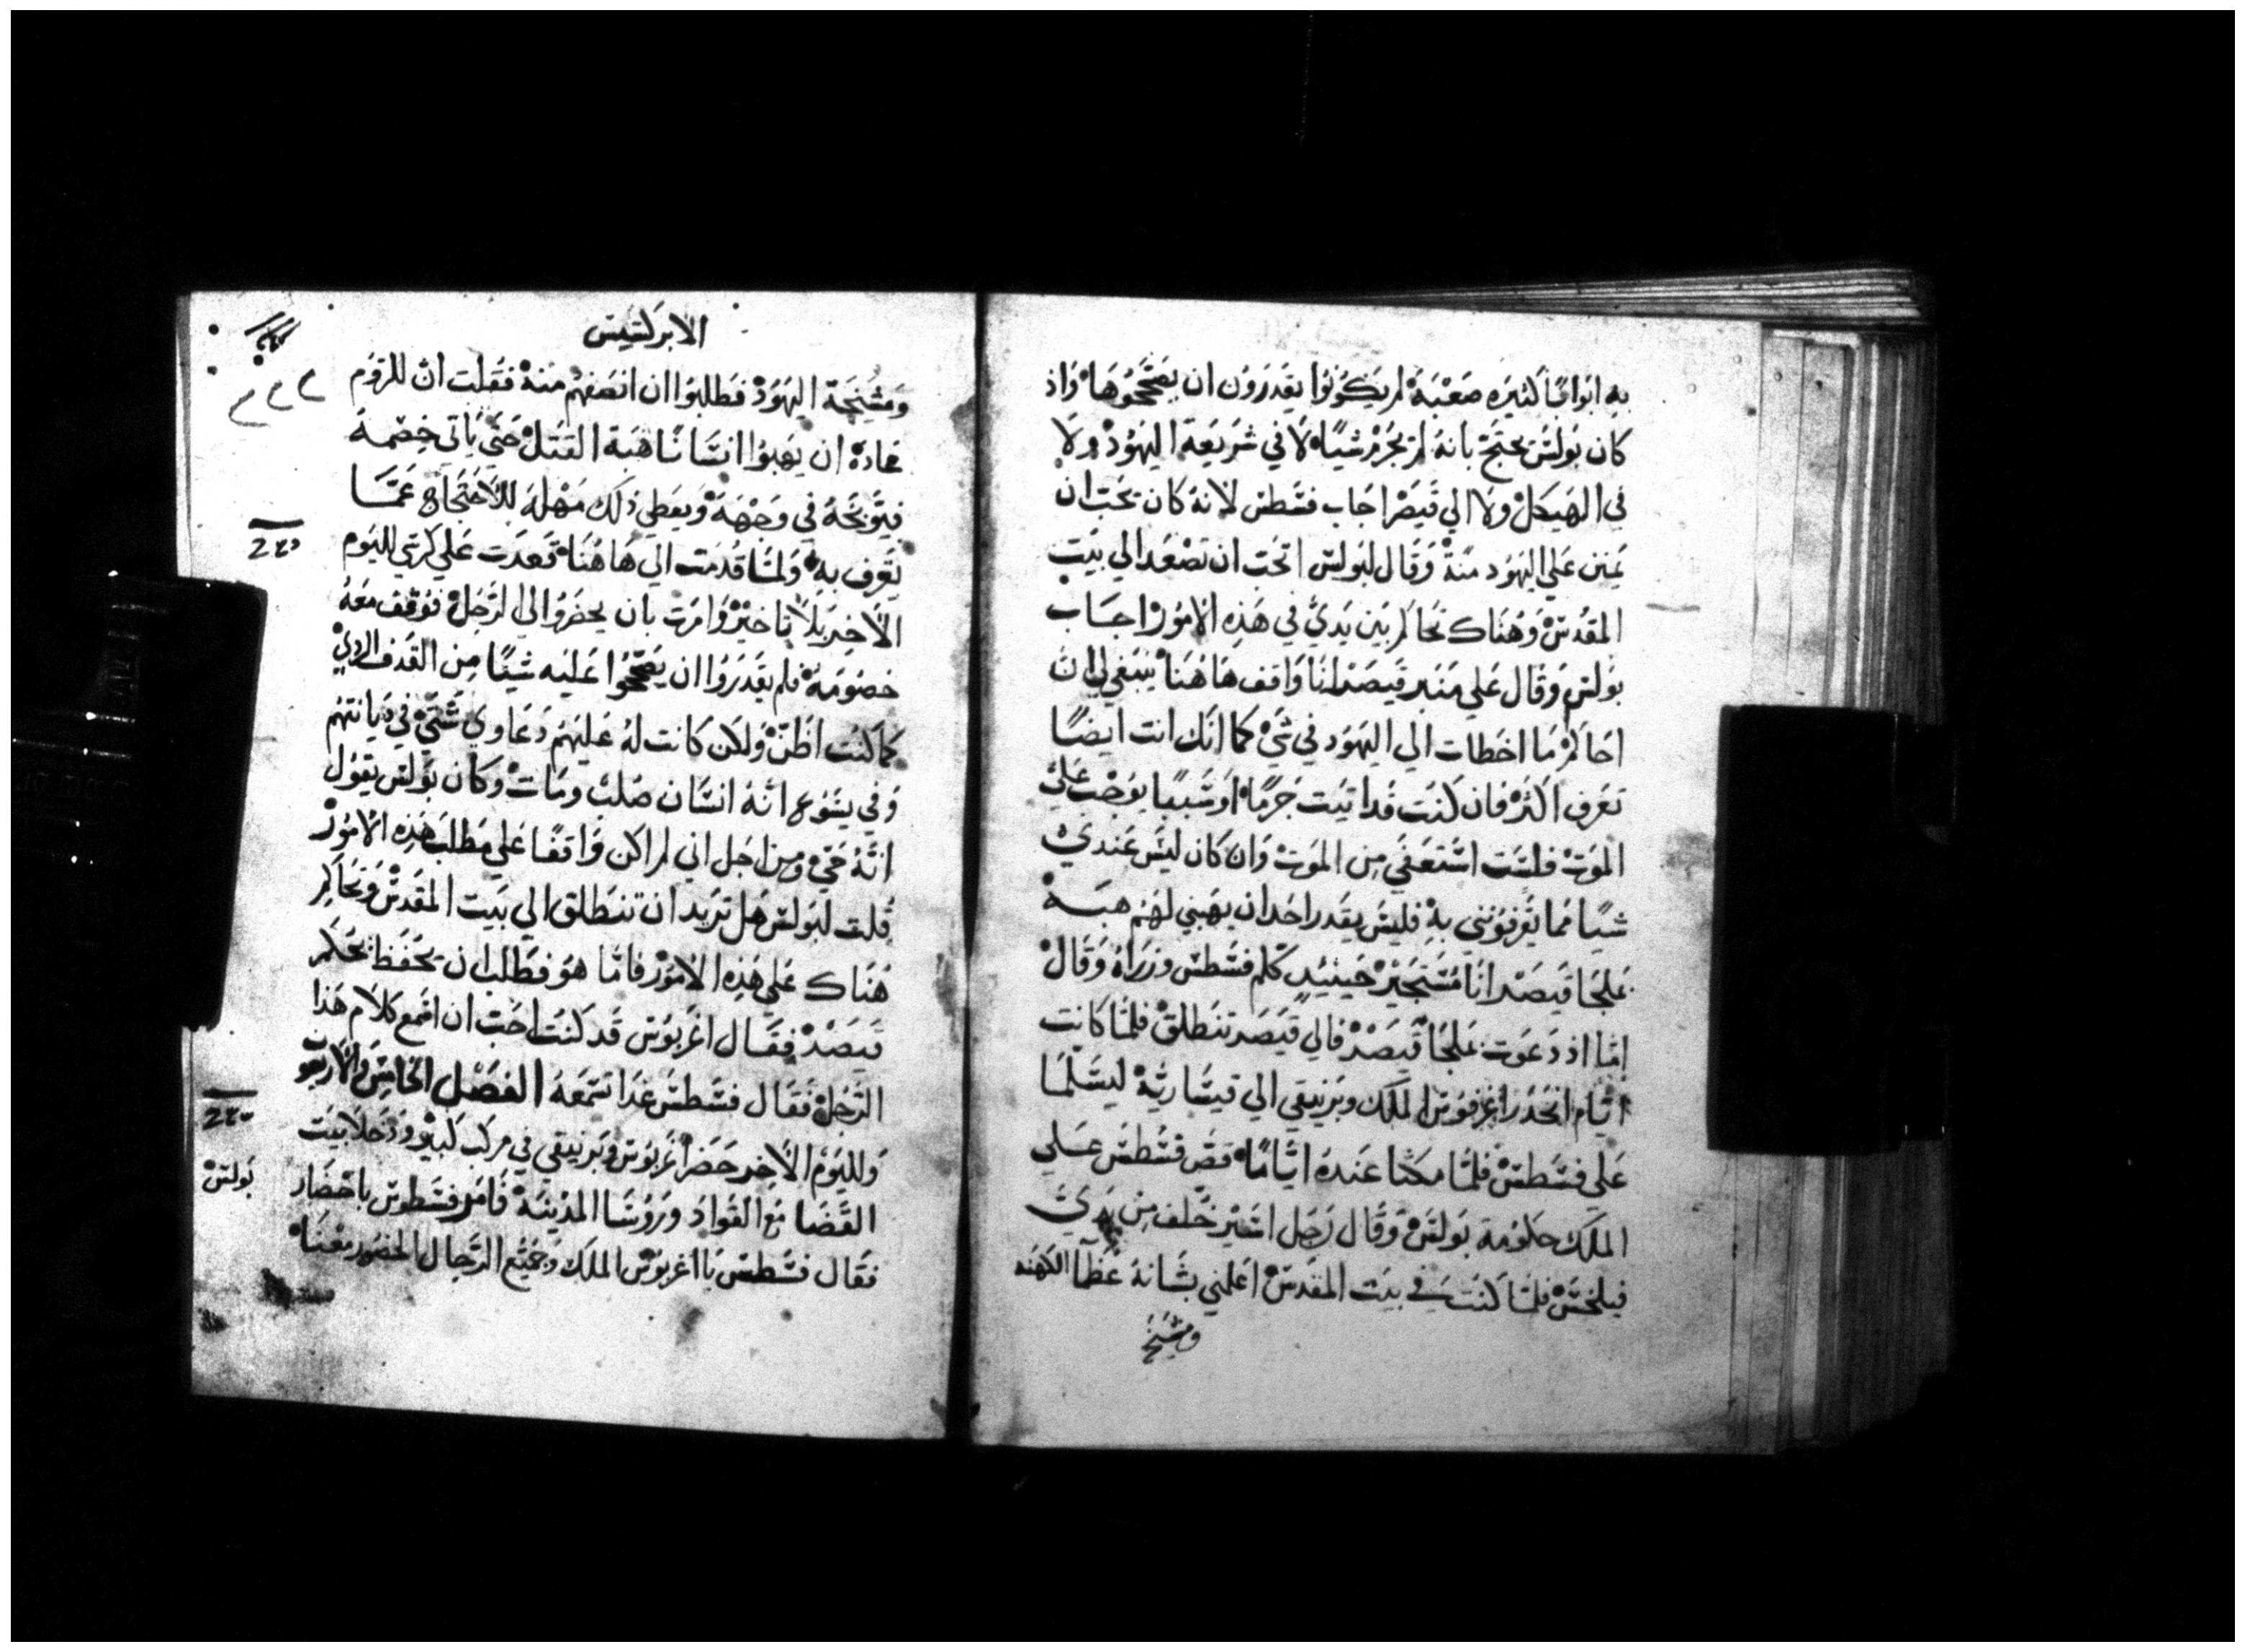 به ابوابًا كثيره صعبة لم يكونوا يقدرون ان يصححوها واذ
كان بولس يحتج بانه لم يجرم شيا لا في شريعة اليهود ولا
في الهيكل ولا الي قيصر اجاب فسطس لانه كان يحب ان
يمنن علي اليهود منة وقال لبولس اتحب ان تصعد الي بيت
المقدس وهناك تحاكم بين يدي في هذه الامور اجاب
بولس وقال علي منبر قيصر انا واقف هاهنا ينبغي لي ان
احاكم ما اخطات الي اليهود في شي كما انك انت ايضًا
تعرف اكثر فان كنت قد اتيت جرمًا او شيًا يوجب علي
الموت فلست استعفي من الموت وان كان ليس عندي
شيًا مما يقرفونني به فليس يقدر احد ان يهبني لهم هبة
علجا قيصر انا مستجير حينيدٍ كلم فسطس وزراه وقال
اما اذ دعوت علجا قيصر فالي قيصر تنطلق فلما كانت
ايام انحدر اغرفوس الملك وبرنيقي الي قيسارية ليسلما
علي فسطس فلما مكثا عنده ايامًا قص فسطس علي
الملك حكومة بولس وقال رجل اسير خلف من يدي
فيلخس فلما كنت في بيت المقدس اعلمني بشانه عظما الكهنه
ومشيخ
الابركسيس
ومشيخة اليهود فطلبوا ان انصفهم منه فقلت ان للروم
عادة ان يهبوا انسانًا هبة القتل حتي ياتي خصمه
فيوبخه في وجهه ويعطي ذلك مهلة للاحتجاج عما
يقرف به ولما قدمت الي هاهنا قعدت علي كرسي لليوم
الاخر بلا تاخير وامرت بان يحضروا الي الرجل فوقف معه
خصومه فلم يقدروا ان يصححوا عليه شيًا من القذف الردي
كما كنت اظن ولكن كانت له عليهم دعاوي شتي في ديانتهم
وفي يشوع انه انسان صلب ومات وكان بولس يقول
انه حي ومن اجل اني لم اكن واقفًا علي مطلب هذه الامور
قلت لبولس هل تريد ان تنطلق الي بيت المقدس وتحاكم
هناك علي هذه الامور فاما هو فطلب ان يحفظ لحكم
قيصر فقال اغربوس قد كنت احب ان اسمع كلام هذا
الرجل فقال فسطس غدا تسمعه الفصل الخامس والاربعون
ولليوم الاخر حضر اغربوس وبرنيقي في مركب كبير ودخلا بيت
القضا مع القواد وروسا المدينة فامر فسطوس باحضار
بولس
فقال فسطس يا اغربوس الملك وجميع الرجال الحضور معنا